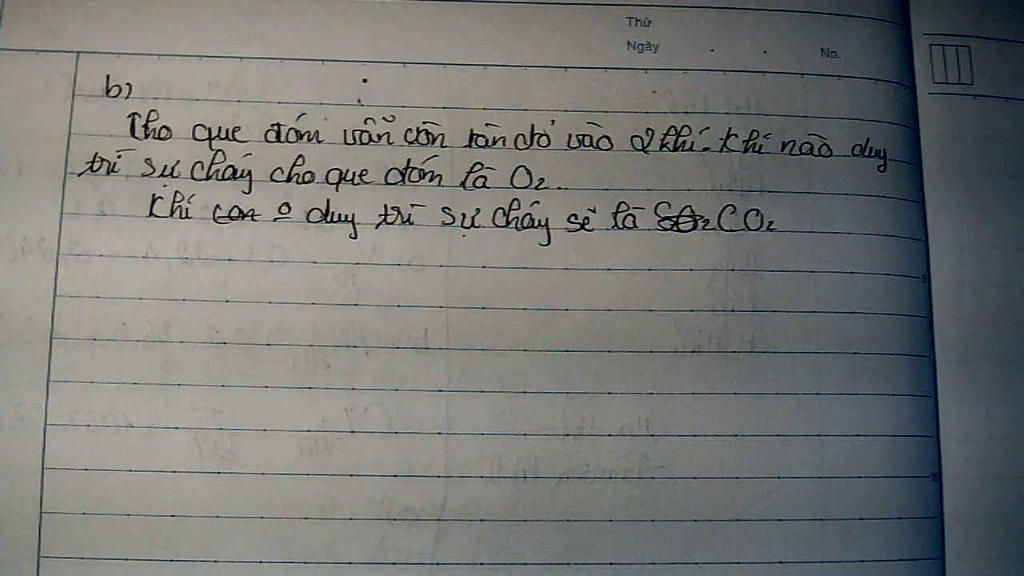 Thứ
Ngày . . No.
b)
Cho que đóm vẫn còn tàn đỏ vào 2 khí. Khí nào duy
trì sự cháy cho que đóm là O₂.
Khí duy trì sự cháy sẽ là CO₂